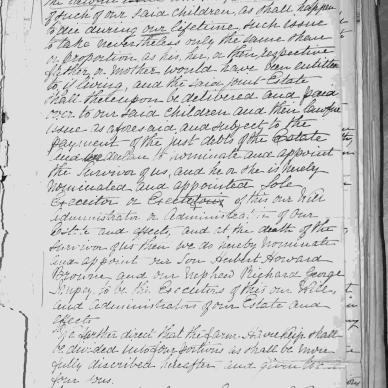 of such of our said children, as shall happen
to die during our lifetime such issue
to take nevertheless only the same share
or proportion as his, her, or their respective
father or mother would have been entitled
to, if living, and the said joint Estate
shall thereupon be delivered and paid
over to our said children and their lawful
issue as aforesaid, and subject to the
payment of the just debts of the Estate
And we declare to nominate and appoint
the Survivor of us, and he or she is hereby
nominated and appointed Sole
Executor or Executrix of this our Will
Administrator or Administrat of our
Estate and effects, and at the death of the
Survivor of us then we do hereby nominate
and appoint our Son Hubert Howard
Browne and our Nephew Richard George
to be the Executors of this our Will
and administrators of our Estate and
effects
We further direct that the farm shall
be divided into four portions as shall be more
fully described hereafter and given to
four sons.